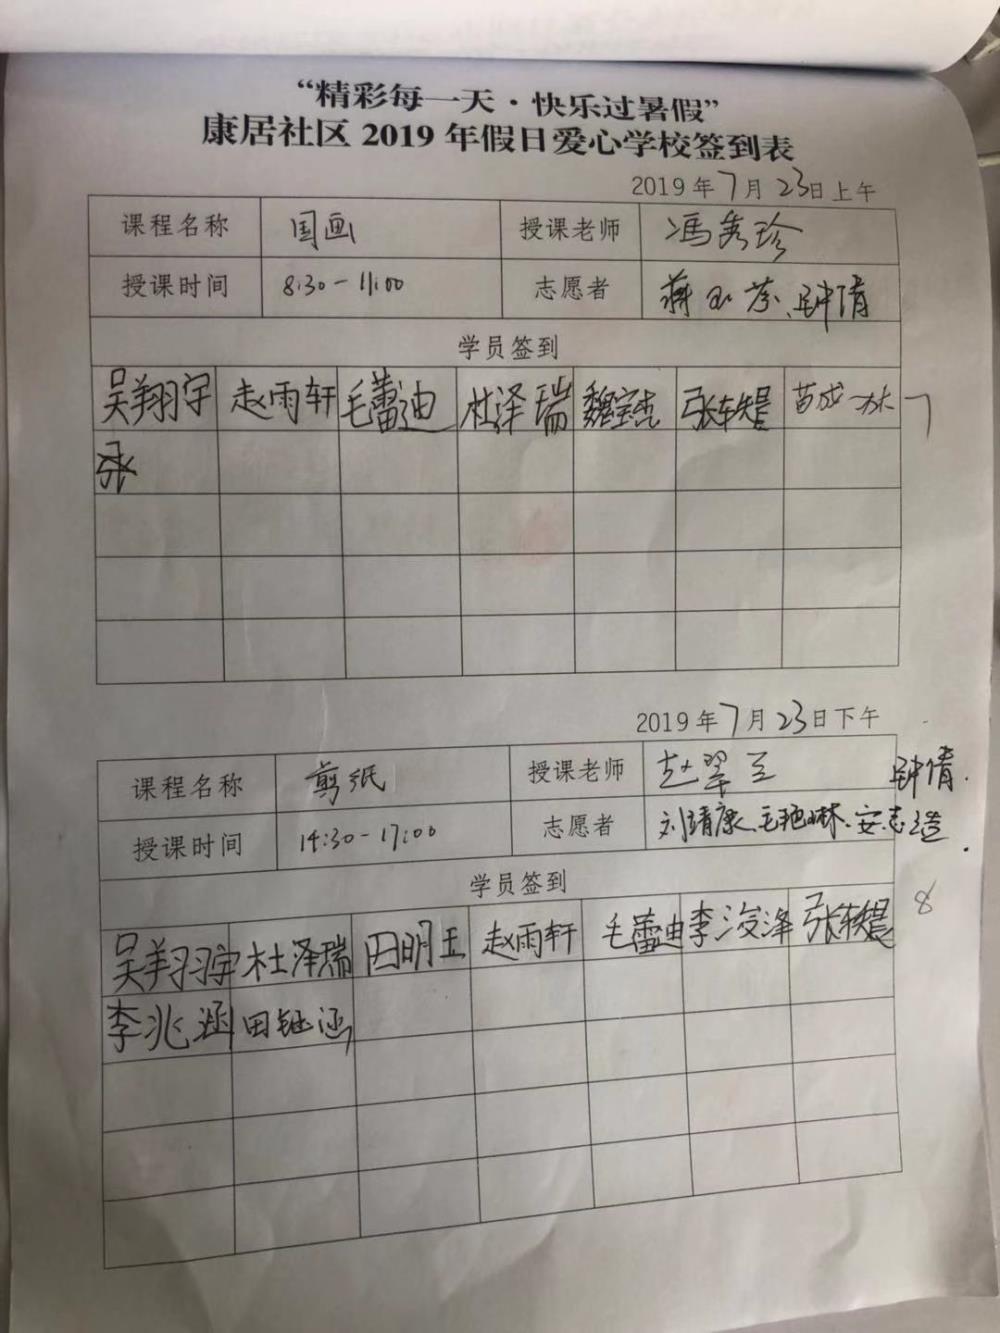 “精彩每一天·快乐过暑假”
康居社区 2019 年假日爱心学校签到表
2019 年 7 月 23 日上午
课程名称 国画 授课老师 冯秀珍
授课时间 8:30-11:00 志愿者 蒋玉芬、钟倩
学员签到
吴翔宇 赵雨轩 毛蕾迪 杜泽瑞 魏宝杰 张轶晨 苗成林 7
2019 年 7 月 23 日下午
课程名称 剪纸 授课老师 赵翠兰 钟倩.
授课时间 14:30-17:00 志愿者 刘靖康、毛艳琳、安志造.
学员签到 8
吴翔宇 杜泽瑞 田明玉 赵雨轩 毛蕾迪 李浚泽 张轶晨
李兆涵 田钰涵